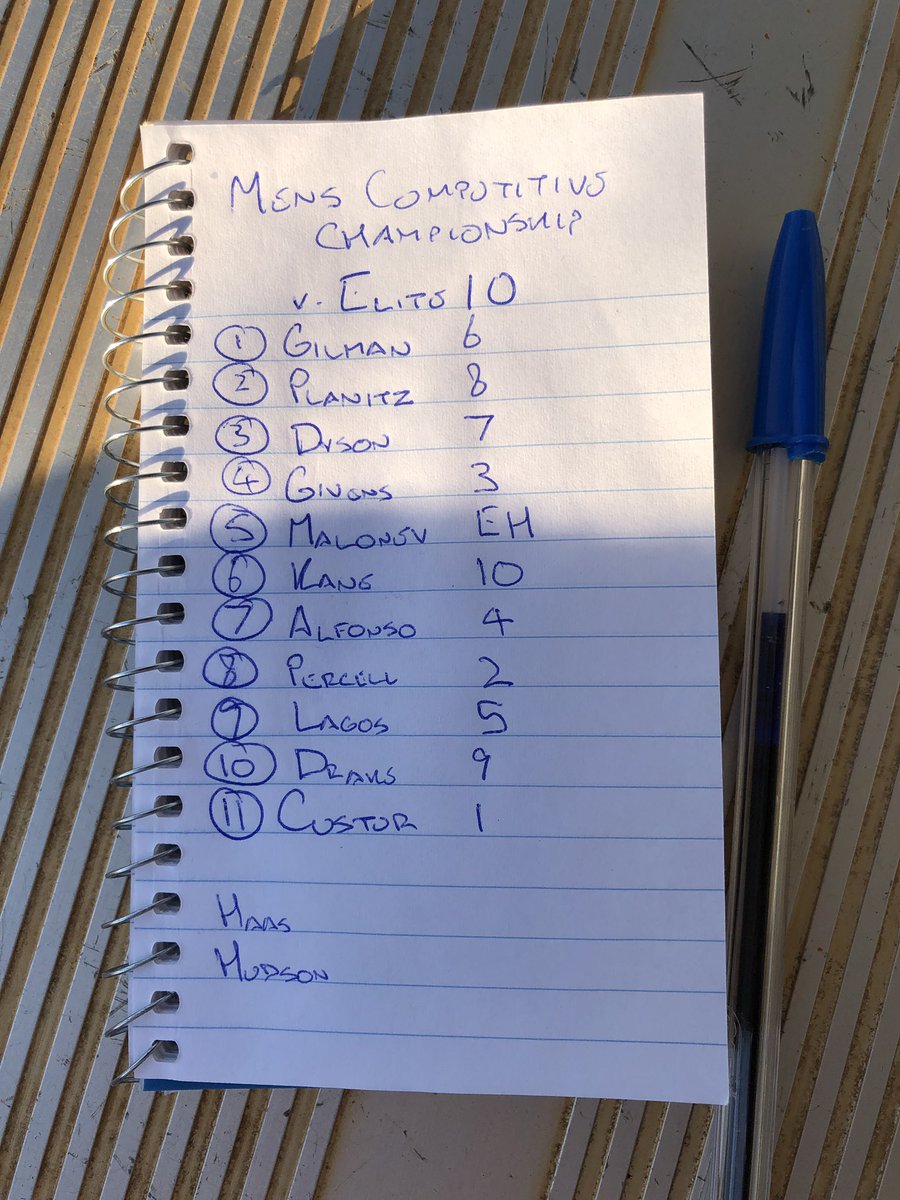 MENS COMPETITIVE
CHAMPIONSHIP
v. ELITE 10
1 GILMAN 6
2 PLANITZ 8
3 DYSON 7
4 GIVENS 3
5 MALONEY EH
6 KANE 10
7 ALFONSO 4
8 PERCELL 2
9 LAGOS 5
10 DRAKE 9
11 CUSTER 1
HAAS
HUDSON